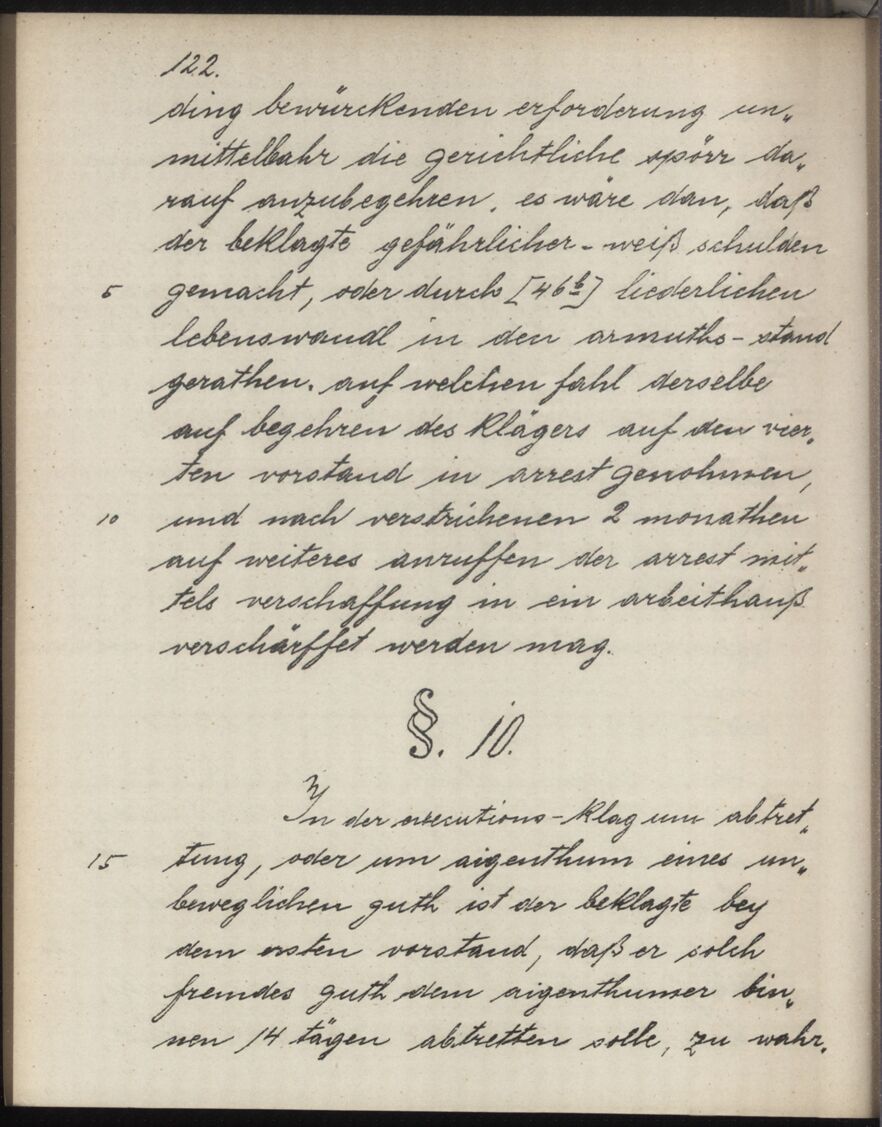 122.
ding bewürckenden erforderung un„
mittelbahr die gerichtliche spörr da„
rauf anzubegehren, es wäre dan, daß
der beklagte gefährlicher-weiß schulden
5 gemacht, oder durch [46b] liederlichen
lebenswandl in den armuths-stand
gerathen. auf welchen fahl derselbe
auf begehren des klägers auf den vier„
ten vorstand in arrest genohmen,
10 und nach verstrichenen 2 monathen
auf weiteres anruffen der arrest mit„
tels verschaffung in ein arbeithauß
verschärffet werden mag.
§. 10.
In der executions-klag um abtret„
15 tung, oder um aigenthum eines un„
beweglichen guth ist der beklagte bey
dem ersten vorstand, daß er solch
fremdes guth dem aigenthumer bin„
nen 14 tägen abtretten solle, zu wahr„